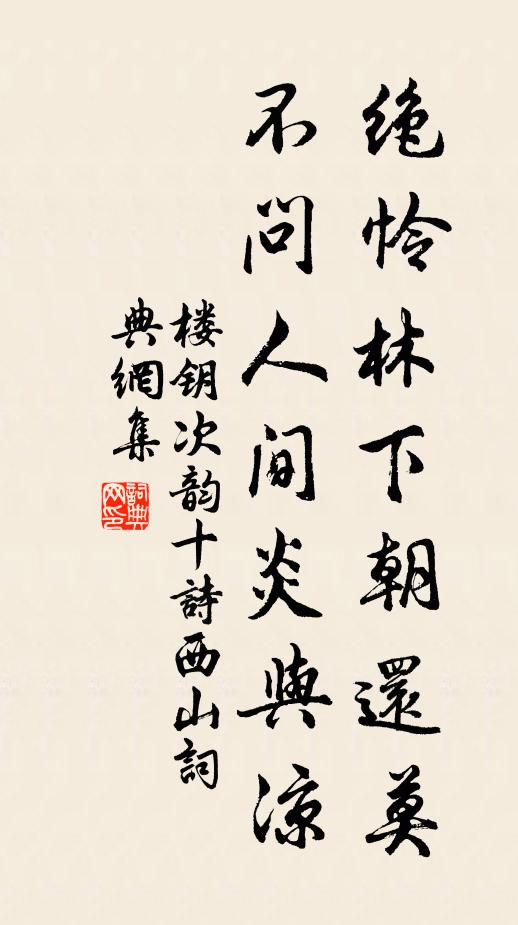 绝怜林下朝還莫
不问人间炎與凉
楼钥次韵十詩西山詞
典網集
詞典网印